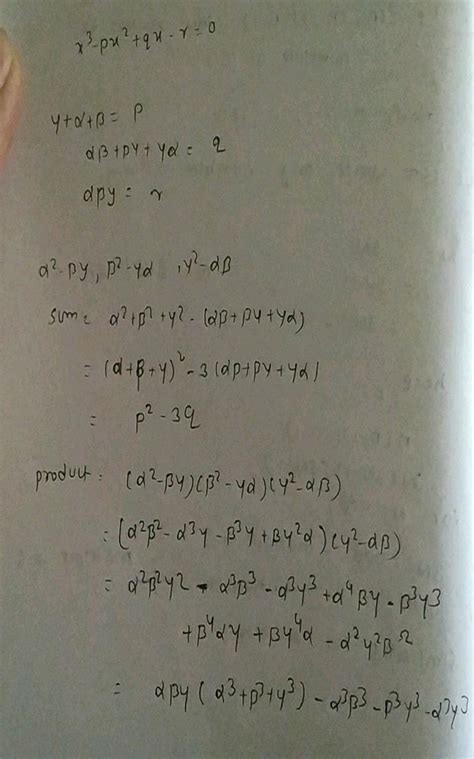 x³-px²+qx-r=0
γ+α+β= p
αβ+βγ+γα= q
αβγ= r
α²-βγ, β²-γα , γ²-αβ
sum= α²+β²+γ²-(αβ+βγ+γα)
= (α+β+γ)²-3(αβ+βγ+γα)
= p²-3q
product: (α²-βγ)(β²-γα)(γ²-αβ)
= (α²β²-α³γ-β³γ+βγ²α)(γ²-αβ)
= α²β²γ² - α³β³-α³γ³+α⁴βγ-β³γ³
+β⁴αγ +βγ⁴α -α²γ²β²
= αβγ(α³+β³+γ³)-α³β³-β³γ³-α³γ³